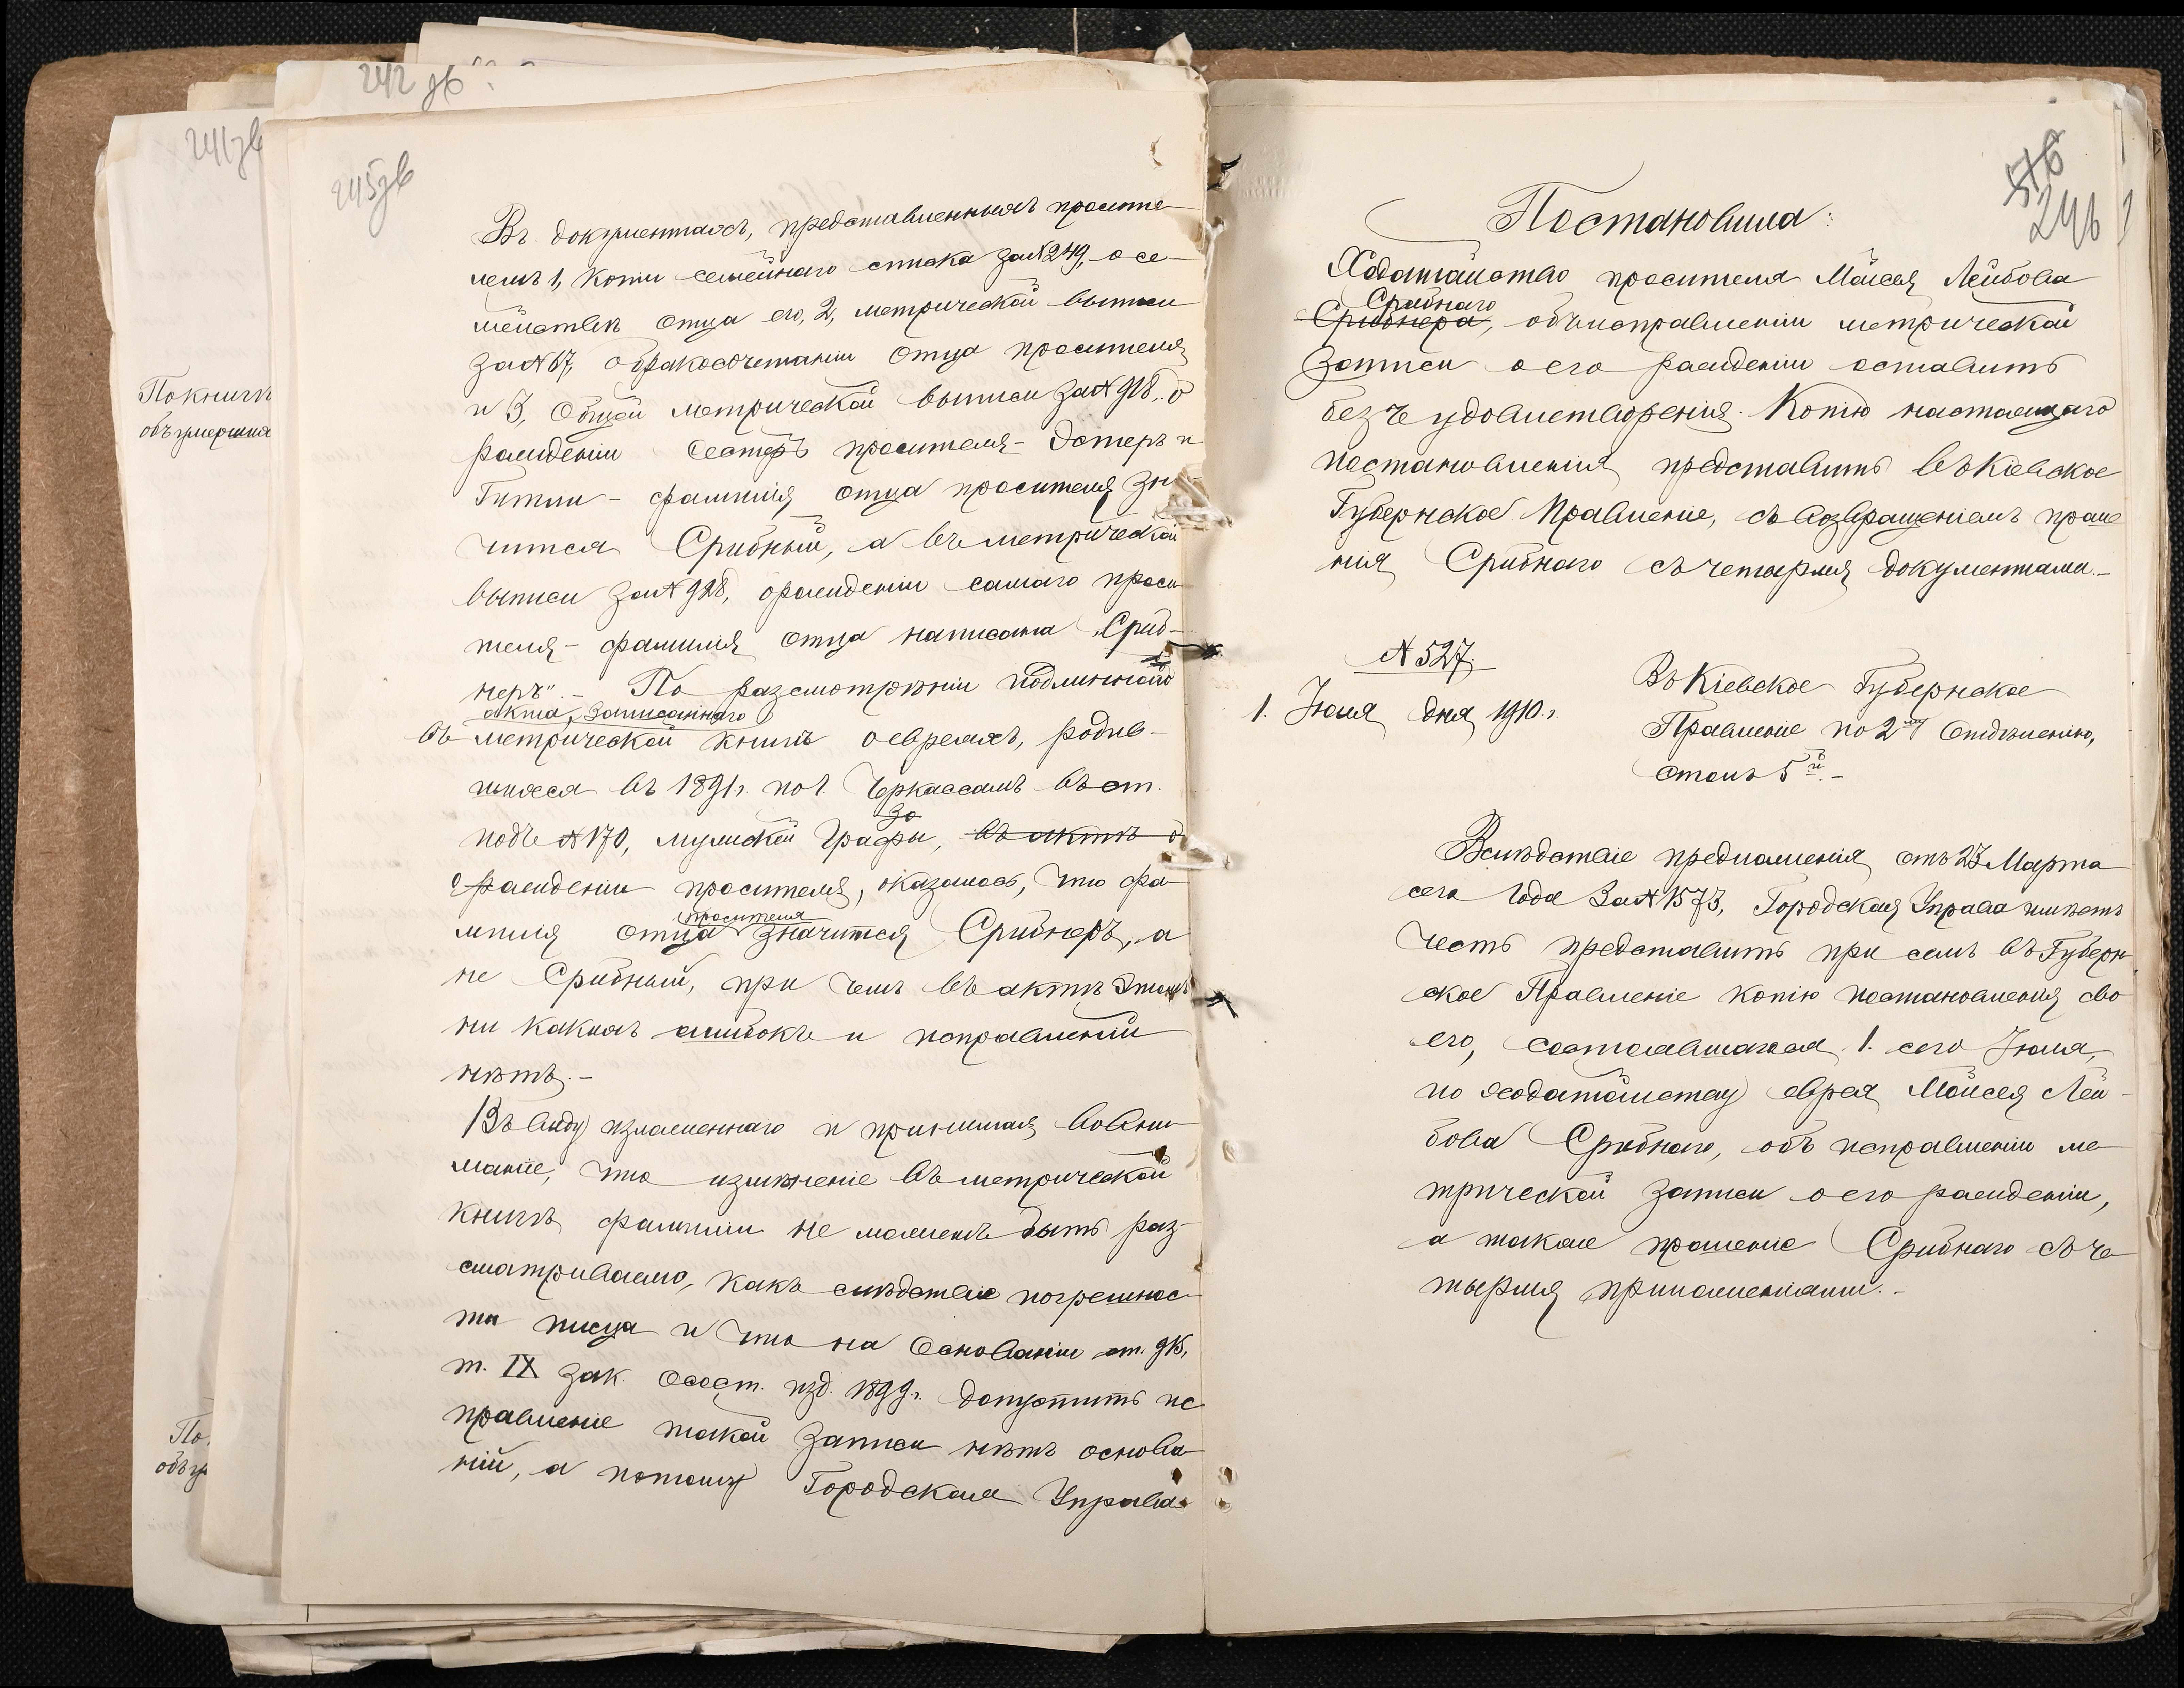 242 зв
241 зв
По книгѣ
объ умерших
По
объ у
245 зв
Въ документахъ, представленныхъ просите-
лемъ 1, копіи семейнаго списка за № 249, о се-
мействѣ отца его, 2, метрической выписи
за № 67, о бракосочетаніи отца просителя
и 3, общей метрической выписи за № 918, о
рожденіи сестеръ просителя - Эстеръ и
Гитли - фамилія отца просителя зна-
чится Срибный, а въ метрической
выписи за № 928, о рожденіи самаго проси-
теля - фамилія отца написана „Сриб-
неръ". - По разсмотрѣніи подлиннаго
акта, записаннаго
въ метрической книгѣ о евреяхъ, родив-
шихся въ 1891 г. по г. Черкассамъ въ ст.
подъ № 170, мужской графы, въ актѣ о
рожденіи просителя, оказалось, что фа-
милія отца просителя значится Срибнеръ, а
не Срибный, при чемъ въ актѣ этомъ
ни какихъ ошибокъ и исправленій
нѣтъ. -
Въ виду изложеннаго и принимая во вни-
маніе, что измѣненіе въ метрической
книгѣ фамиліи не можетъ быть раз-
сматриваемо, какъ слѣдствіе погрешнос-
ти писца и что на основаніи ст. 915,
т. IX зак. о сост. изд. 1899 г. допустить ис
правленіе такой записи нѣтъ основа-
ній, а потому Городская Управа
576
246
Постановила:
Ходатайство просителя Мойсея Лейбова
Срибнаго
Срибнера, объ исправленіи метрической
записи о его рожденіи оставить
безъ удовлетворенія. Копію настоящаго
постановленія представить въ Кіевское
Губернское Правленіе, съ возвращеніемъ проше
нія Срибнаго съ четырмя документами. -
№ 527.
1. Іюля дня 1910 г.
Въ Кіевское Губернское
Правленіе по 2му Отдѣленію,
столъ 5й. -
Вслѣдствіе предложенія отъ 23 Марта
сего года за № 1573, Городская Управа имѣетъ
честь представить при семъ въ Губерн
ское Правленіе копію постановленія сво
его, состоявшагося 1. сего Іюля,
по ходатайству еврея Мойсея Лей-
бова Срибнаго, объ исправленіи ме
трической записи о его рожденіи,
а также прошеніе Срибнаго съ че
тырмя приложеніями. -